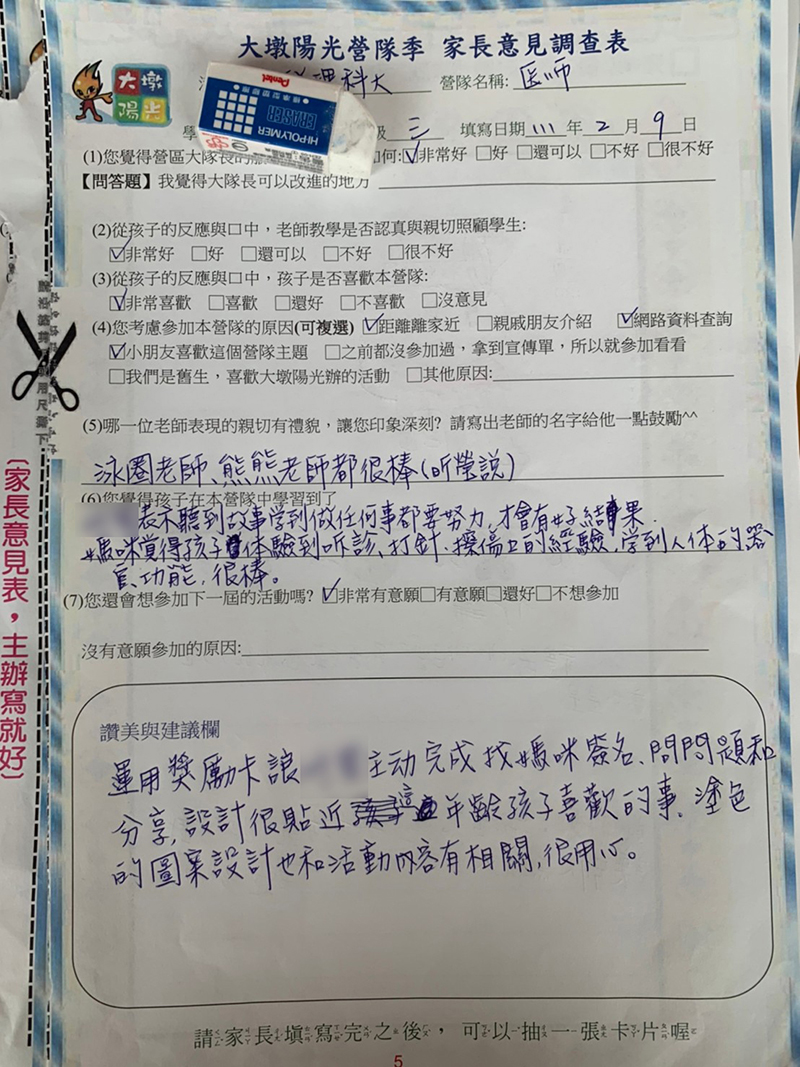 大墩陽光營隊季 家長意見調查表
大墩
陽光
理科大 營隊名稱: 医师
Pentel
HI-POLYMER
ERASER
級 三 填寫日期 111 年 2 月 9 日
(1)您覺得營區大隊長的 如何: ☑非常好 □好 □還可以 □不好 □很不好
【問答題】我覺得大隊長可以改進的地方
(2)從孩子的反應與口中,老師教學是否認真與親切照顧學生:
☑非常好 □好 □還可以 □不好 □很不好
(3)從孩子的反應與口中,孩子是否喜歡本營隊:
☑非常喜歡 □喜歡 □還好 □不喜歡 □沒意見
(4)您考慮參加本營隊的原因(可複選) ☑距離離家近 □親戚朋友介紹 ☑網路資料查詢
☑小朋友喜歡這個營隊主題 □之前都沒參加過,拿到宣傳單,所以就參加看看
□我們是舊生,喜歡大墩陽光辦的活動 □其他原因:
(5)哪一位老師表現的親切有禮貌,讓您印象深刻? 請寫出老師的名字給他一點鼓勵^^
泳圈老師、熊熊老師都很棒(昕瑩說)
(6)您覺得孩子在本營隊中學習到了
表示聽到故事学到做任何事都要努力,才會有好結果.
媽咪覚得孩子体驗到听診、打針、擦傷口的經驗,学到人体的器
官功能,很棒。
(7)您還會想參加下一屆的活動嗎? ☑非常有意願□有意願□還好□不想參加
沒有意願參加的原因:
讚美與建議欄
運用獎勵卡讓 主动完成找媽咪簽名、問問題和
分享,設計很貼近 這年齡孩子喜歡的事、塗色
的圖案設計也和活動內容有相關,很用心。
請家長填寫完之後,可以抽一張卡片喔
5
〔家長意見表,主辦寫就好〕